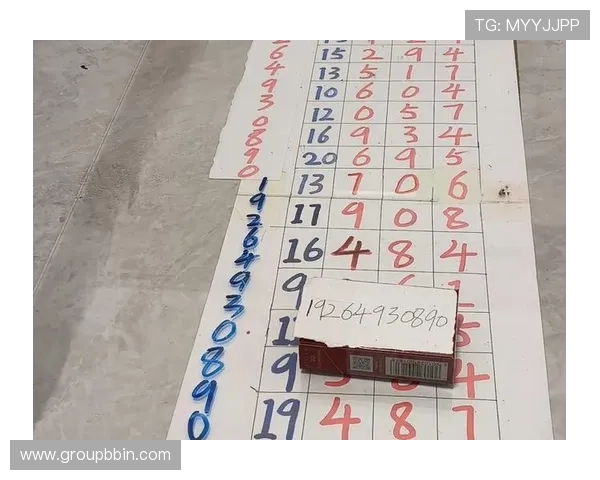 TG: MYYJJPP
6 15 2 9 4
4 13 5 1 7
9 10 6 0 4
3 12 0 5 7
0 16 9 3 4
8 20 6 9 5
9 13 7 0 6
0
1
9 17 9 0 8
2
6 16 4 8 4
4
9 9 1
3 19264930890
0 5
8
9 9 4
0 19 4 8 7
www.groupbbin.com